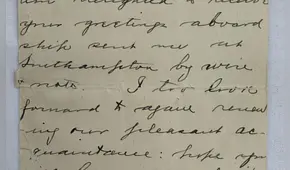 am delighted to receive
your greetings aboard
ship sent me at
Southampton by wire
& note. I too look
forward to again renew
ing our pleasant ac-
quaintance: hope you